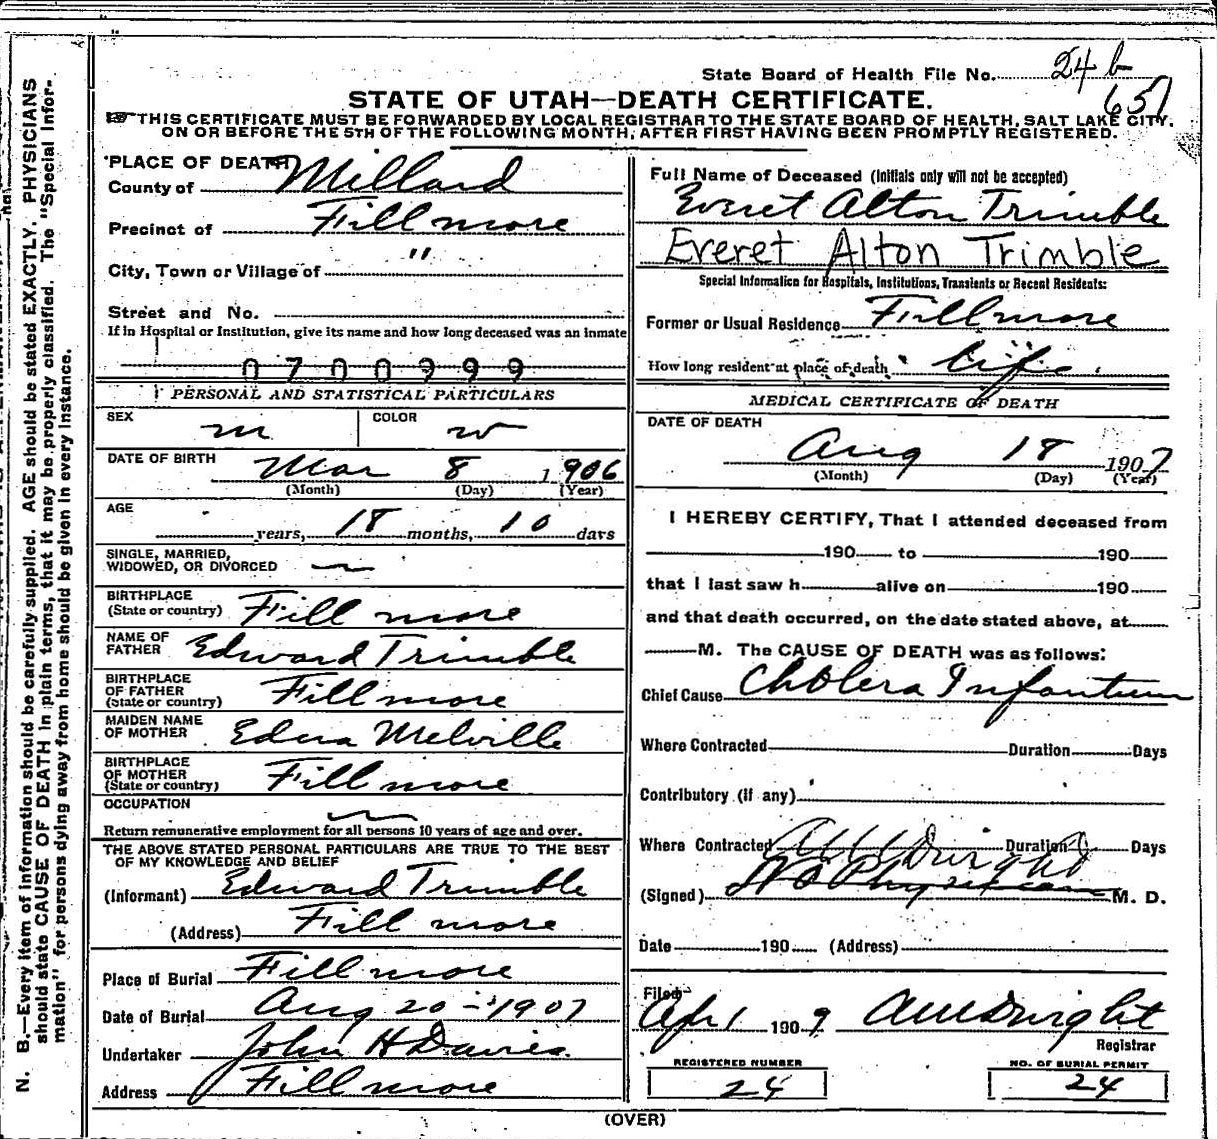 State Board of Health File No. 24 b
651
STATE OF UTAH—DEATH CERTIFICATE.
THIS CERTIFICATE MUST BE FORWARDED BY LOCAL REGISTRAR TO THE STATE BOARD OF HEALTH, SALT LAKE CITY.
ON OR BEFORE THE 5TH OF THE FOLLOWING MONTH, AFTER FIRST HAVING BEEN PROMPTLY REGISTERED.
PLACE OF DEATH
County of Millard
Precinct of Fillmore
City, Town or Village of "
Street and No.
If in Hospital or Institution, give its name and how long deceased was an inmate
0700999
PERSONAL AND STATISTICAL PARTICULARS
SEX m COLOR w
DATE OF BIRTH Mar 8 1906
(Month) (Day) (Year)
AGE
years, 18 months, 10 days
SINGLE, MARRIED,
WIDOWED, OR DIVORCED
BIRTHPLACE
(State or country) Fillmore
NAME OF
FATHER Edward Trimble
BIRTHPLACE
OF FATHER
(State or country) Fillmore
MAIDEN NAME
OF MOTHER Edna Melville
BIRTHPLACE
OF MOTHER
(State or country) Fillmore
OCCUPATION
Return remunerative employment for all persons 10 years of age and over.
THE ABOVE STATED PERSONAL PARTICULARS ARE TRUE TO THE BEST
OF MY KNOWLEDGE AND BELIEF
(Informant) Edward Trimble
(Address) Fillmore
Place of Burial Fillmore
Date of Burial Aug 20 - 1907
Undertaker John H Davies.
Address Fillmore
Full Name of Deceased (Initials only will not be accepted)
Everet Alton Trimble
Everet Alton Trimble
Special Information for Hospitals, Institutions, Transients or Recent Residents:
Former or Usual Residence Fillmore
How long resident at place of death life.
MEDICAL CERTIFICATE OF DEATH
DATE OF DEATH
Aug 18 1907
(Month) (Day) (Year)
I HEREBY CERTIFY, That I attended deceased from
190 to 190
that I last saw h alive on 190
and that death occurred, on the date stated above, at
M. The CAUSE OF DEATH was as follows:
Chief Cause Cholera Infantum
Where Contracted Duration Days
Contributory (if any)
Where Contracted Duration Days
(Signed) No Physician M. D.
Date 190 (Address)
Filed
Apr 1 1909
Registrar
REGISTERED NUMBER
24
NO. OF BURIAL PERMIT
24
(OVER)
N. B.—Every item of information should be carefully supplied. AGE should be stated EXACTLY. PHYSICIANS
should state CAUSE OF DEATH in plain terms, that it may be properly classified. The "Special Infor-
mation" for persons dying away from home should be given in every instance.